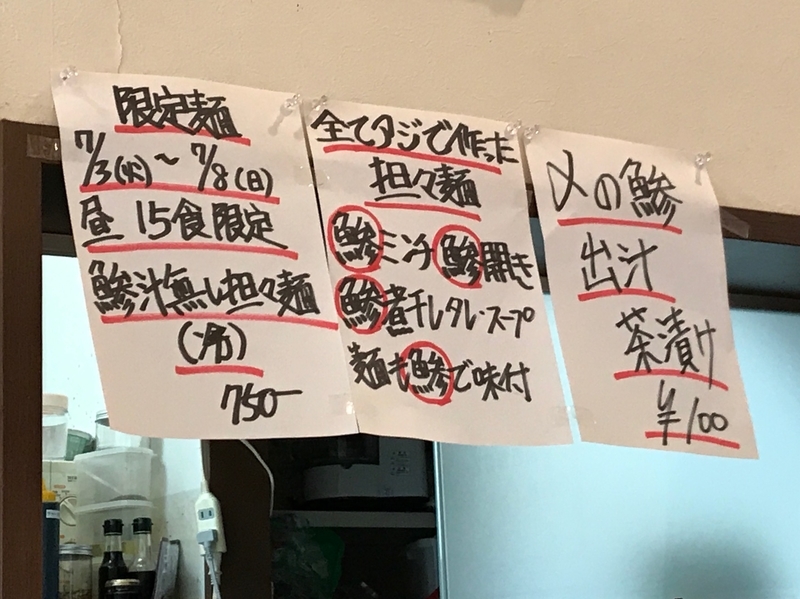 限定麺
7/3(火)～7/8(日)
昼 15食限定
鯵汁無し担々麺
(冷)
750ー
全てアジで作った
担々麺
鯵ミンチ鯵開き
鯵煮干しタレ・スープ
麺も鯵で味付
〆の鯵
出汁
茶漬け
¥100